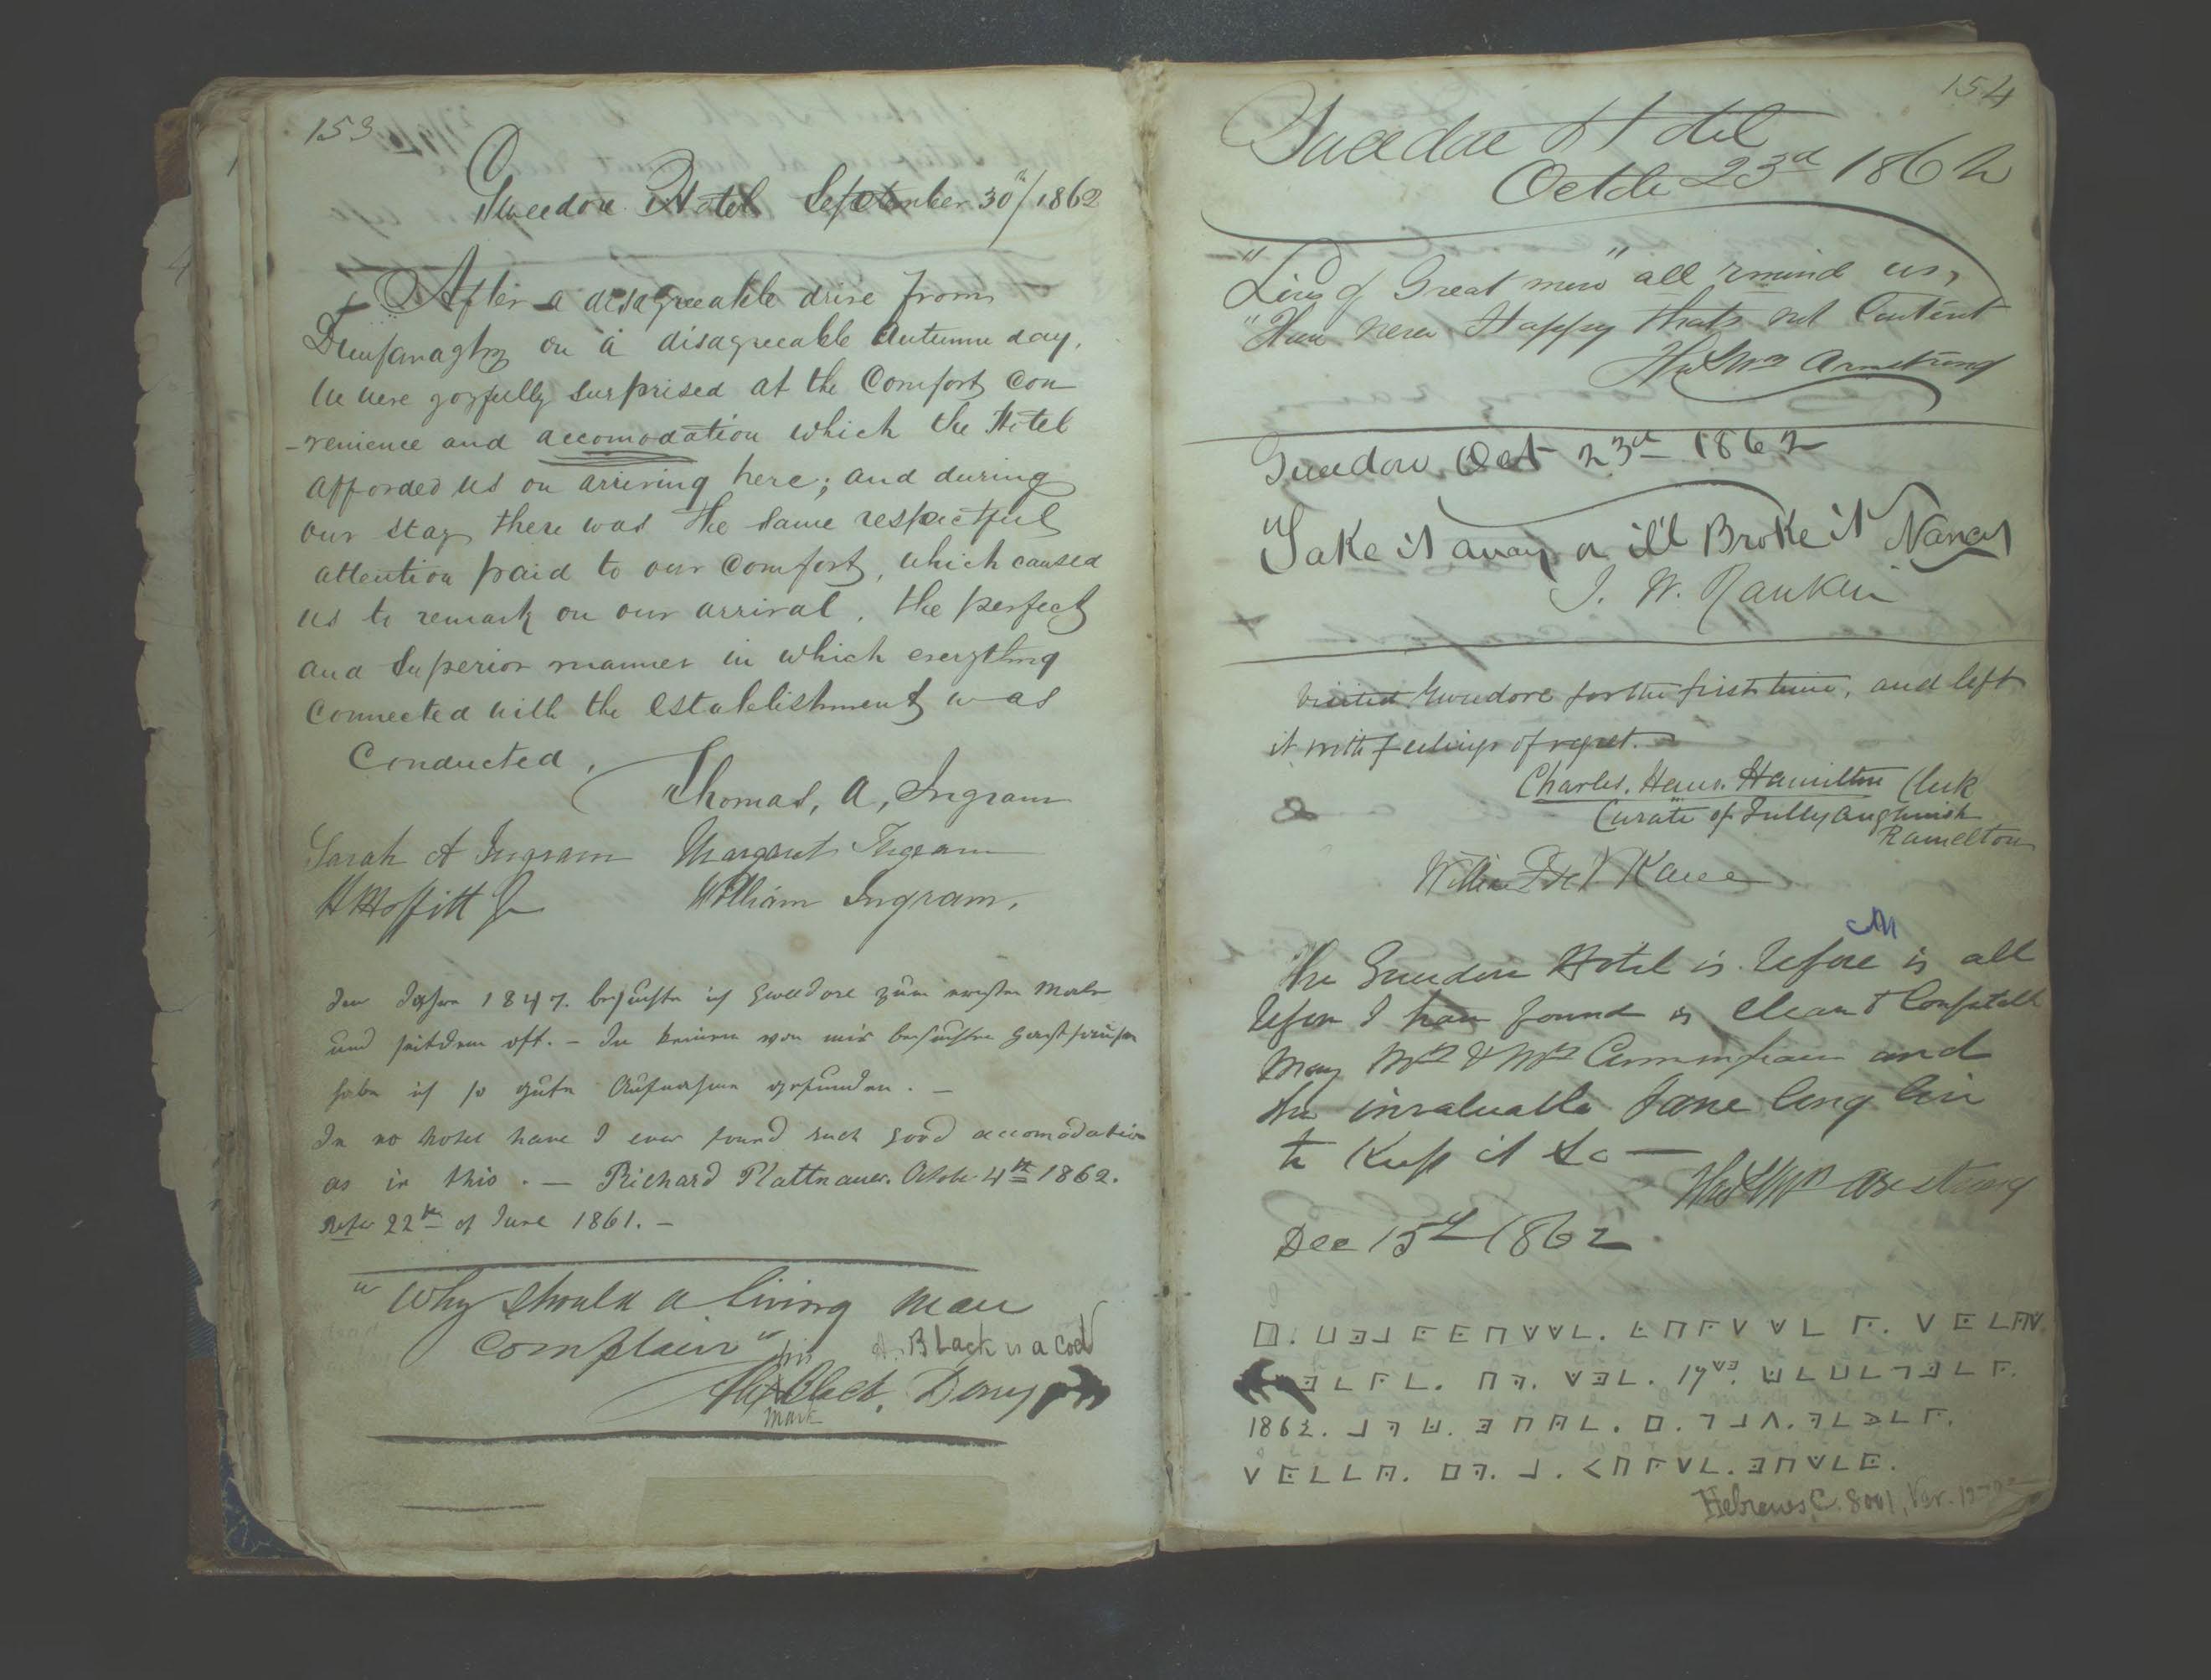 153
Gweedore Hotel September 30th/1862
After a disagreeable drive from
Dunfanaghy on a disagreeable Autumn day,
we were joyfully surprised at the Comfort Con
-venience and accomodation which the Hotel
afforded us on arriving here; and during
our stay there was the same respectful
attention paid to our Comfort, which caused
us to remark on our arrival, the perfect
and superior manner in which everything
Connected with the establishment was
Conducted,
Thomas, A, Ingram
Sarah A Ingram Margaret Ingram
H Moffitt Jr William Ingram.
Im Jahre 1847. besuchte ich Gweedore zum ersten Male
und seitdem oft. – In keinem von mir besuchten Gasthause
habe ich so gute Aufnahme gefunden. –
In no hotel have I ever found such good accomodation
as in this. – Richard Plattnauer. Octobr 4th 1862.
Refer 22th of June 1861. –
"Why should a living man
complain"
A. Black is a cod
his
Black, Derry
mark
154
Gweedore Hotel
Octbr 23d 1862
"Lives of Great men" all remind us,
"Man never Happy thats not Content
Armstrong
Gweedore Oct 23rd 1862
"Take it away or ill Broke it Nancy
J. W. Rankin
Visited Gweedore for the first time, and left
it with feelings of regret.
Charles. Hans. Hamilton Clerk
Curate of Tullyaughnish
Ramelton
Kane
The Gweedore Hotel is before is all
before I have found is Clean & Comfortable
May Mr & Mrs and
the invaluable Jane long live
to Keep it so —
Armstrong
Dec 15th 1862
17
1862.
Hebrews, C. 8001, Ver.